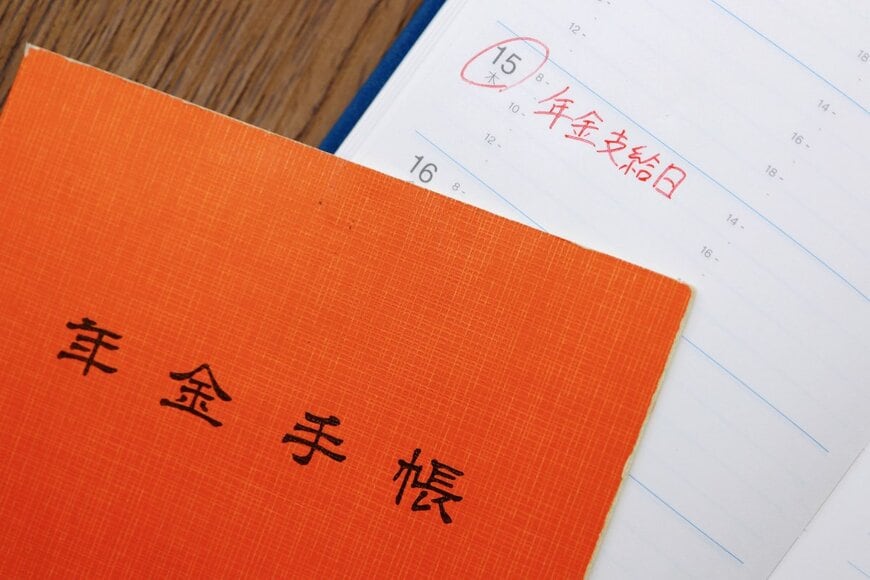 12-
18
15
木
8-
年金支給日
14-
10-
16-
12-
18-
16
8-
14-
16-
年金手帳